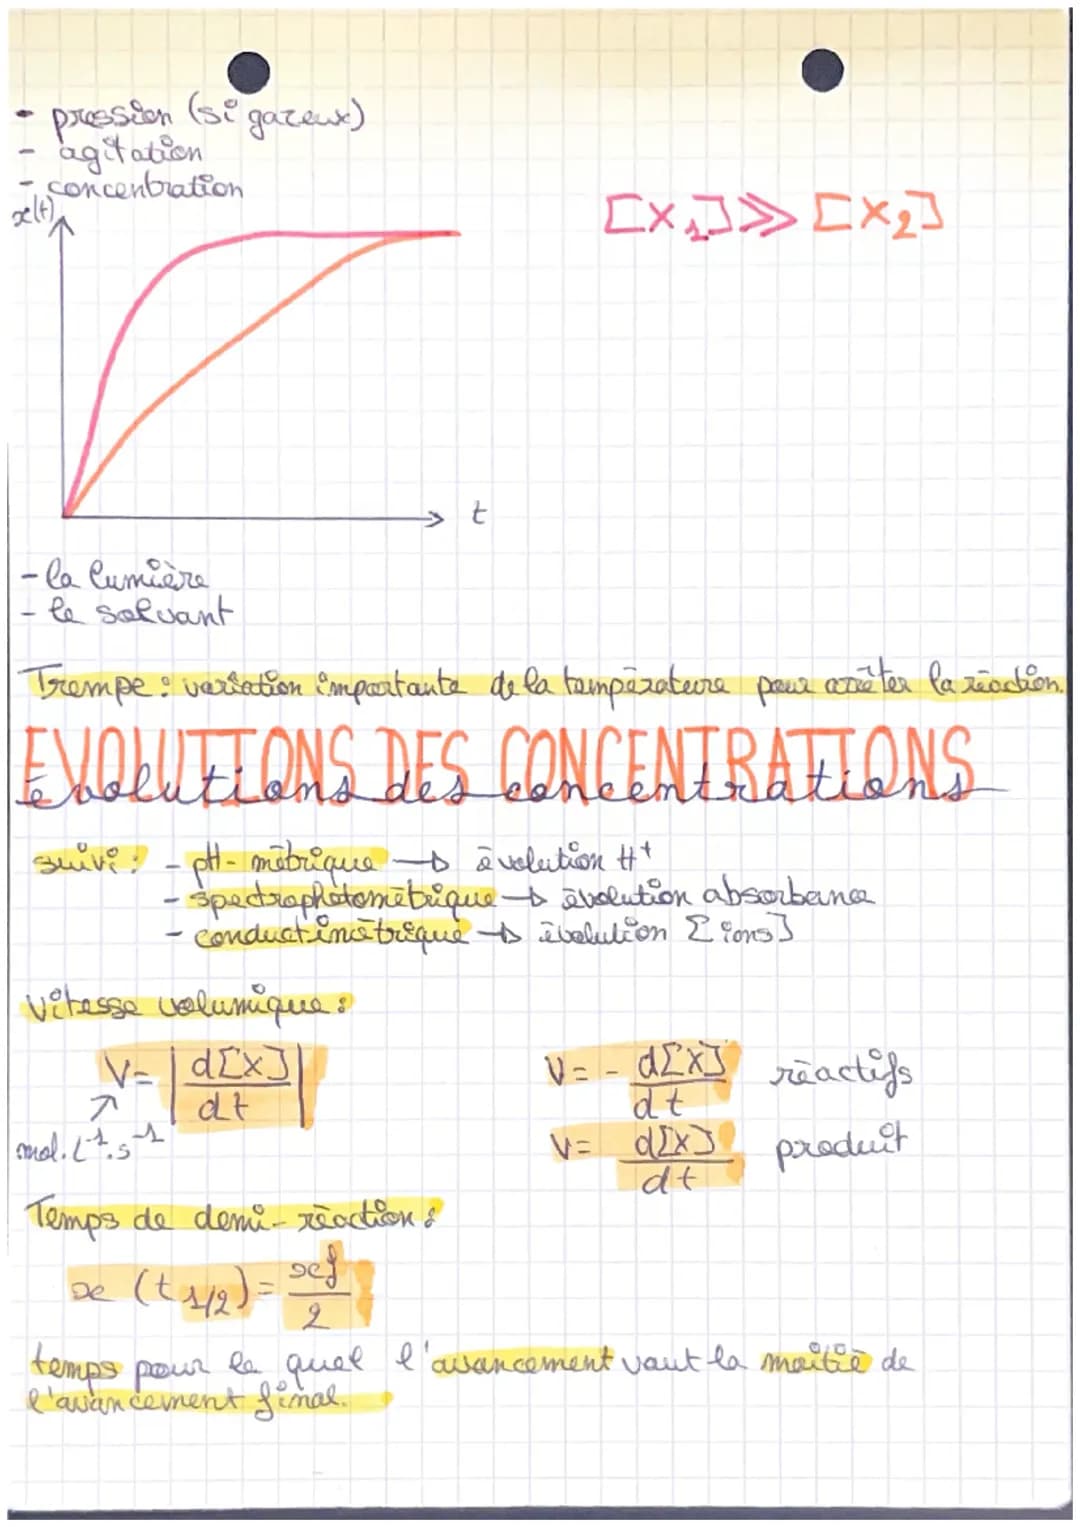 - pression (si gazeux)
- agitation
- concentration
x(t)
[X1] >> [X2]
t
- la lumière
- le solvant
Trempe : variation importante de la température pour arrêter la réaction.
EVOLUTIONS DES CONCENTRATIONS
évolutions des concentrations
suivi : - pH-métrique → évolution H+
- spectrophotométrique → évolution absorbance
- conductimétrique → évolution [ions]
Vitesse volumique :
V = |d[X]/dt|
mol.L-1.s-1
V = - d[X]/dt réactifs
V = d[X]/dt produit
Temps de demi-réaction :
x (t 1/2) = xf/2
temps pour le quel l'avancement vaut la moitié de
l'avancement final.